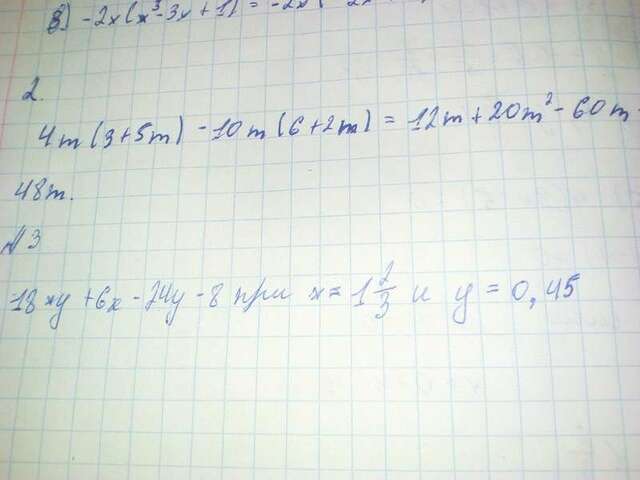 б) -2x(x³-3x+1) = -2x
2.
4m(3+5m) - 10m(6+2m) = 12m+20m²-60m-
48m.
№3
18xy+6x-24y-8 при x=1 2/3 и y=0,45